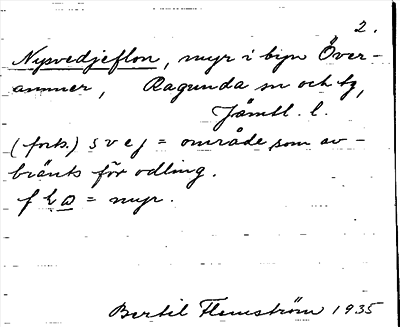 2.
Nysvedjeflon, myr i byn Över-
ammer, Ragunda sn och tg,
Jämtl. l.
(forts.) svej = område som av-
bränts för odling.
= myr.
Bertil Flemström 1935